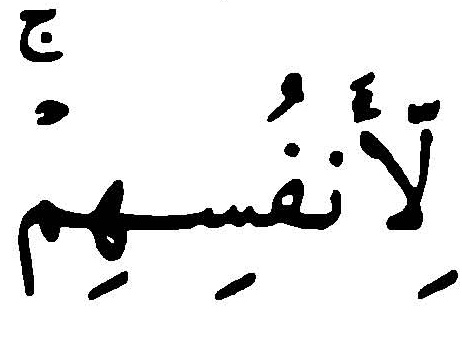 لِّأَنفُسِهِمْۚ